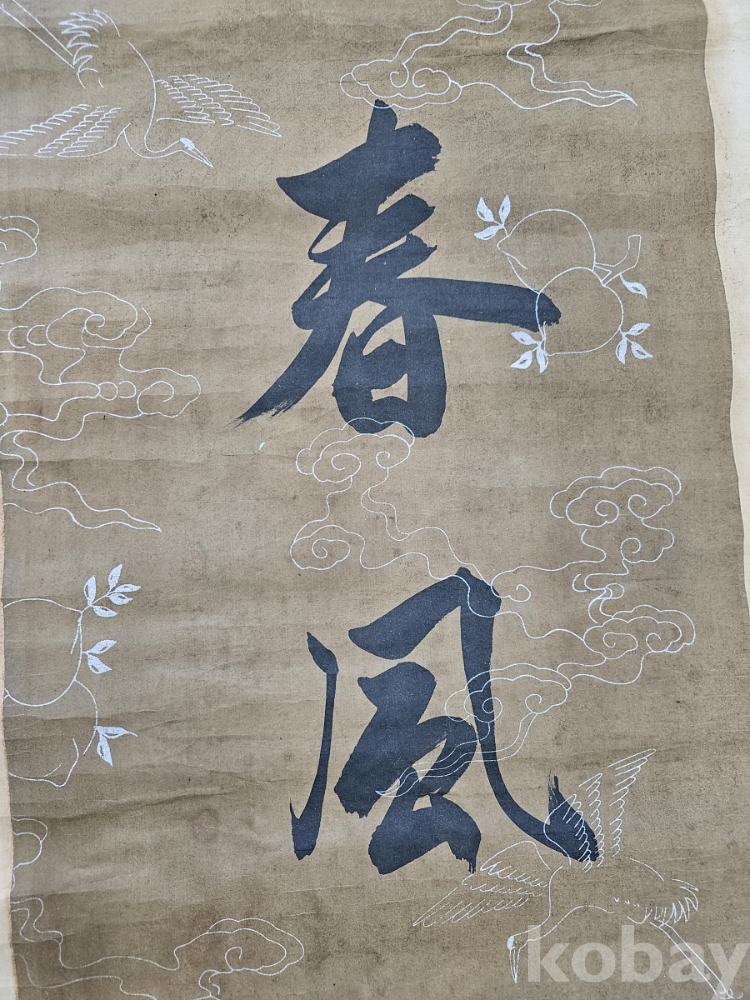 春
風
kobay